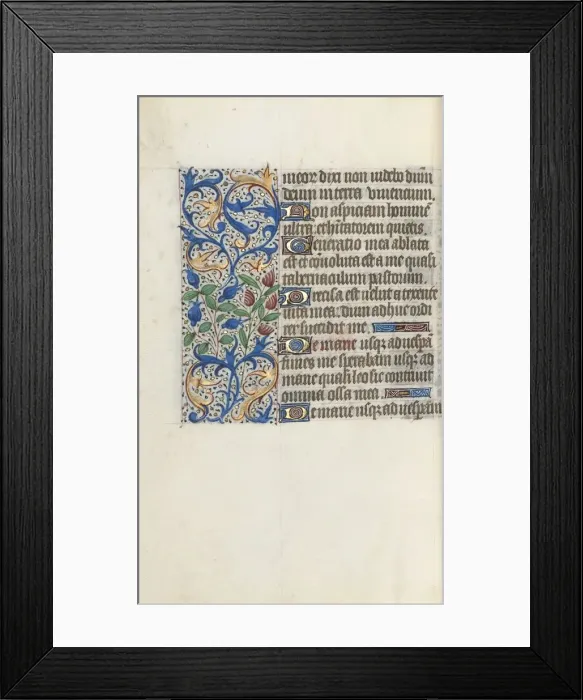 meor dixi non videbo dnm
deum in terra viventium
Non aspiciam homine
ultra et habitatorem quietis
Generatio mea ablata
est et convoluta est a me quasi
tabernaculum pastorum
Precisa est velut a texente
vita mea dum adhuc ordi
rer succidit me
De mane usq ad vespa
finies me sperabam usq ad
mane quasi leo sic contrivit
omnia ossa mea
De mane usq ad vesperam